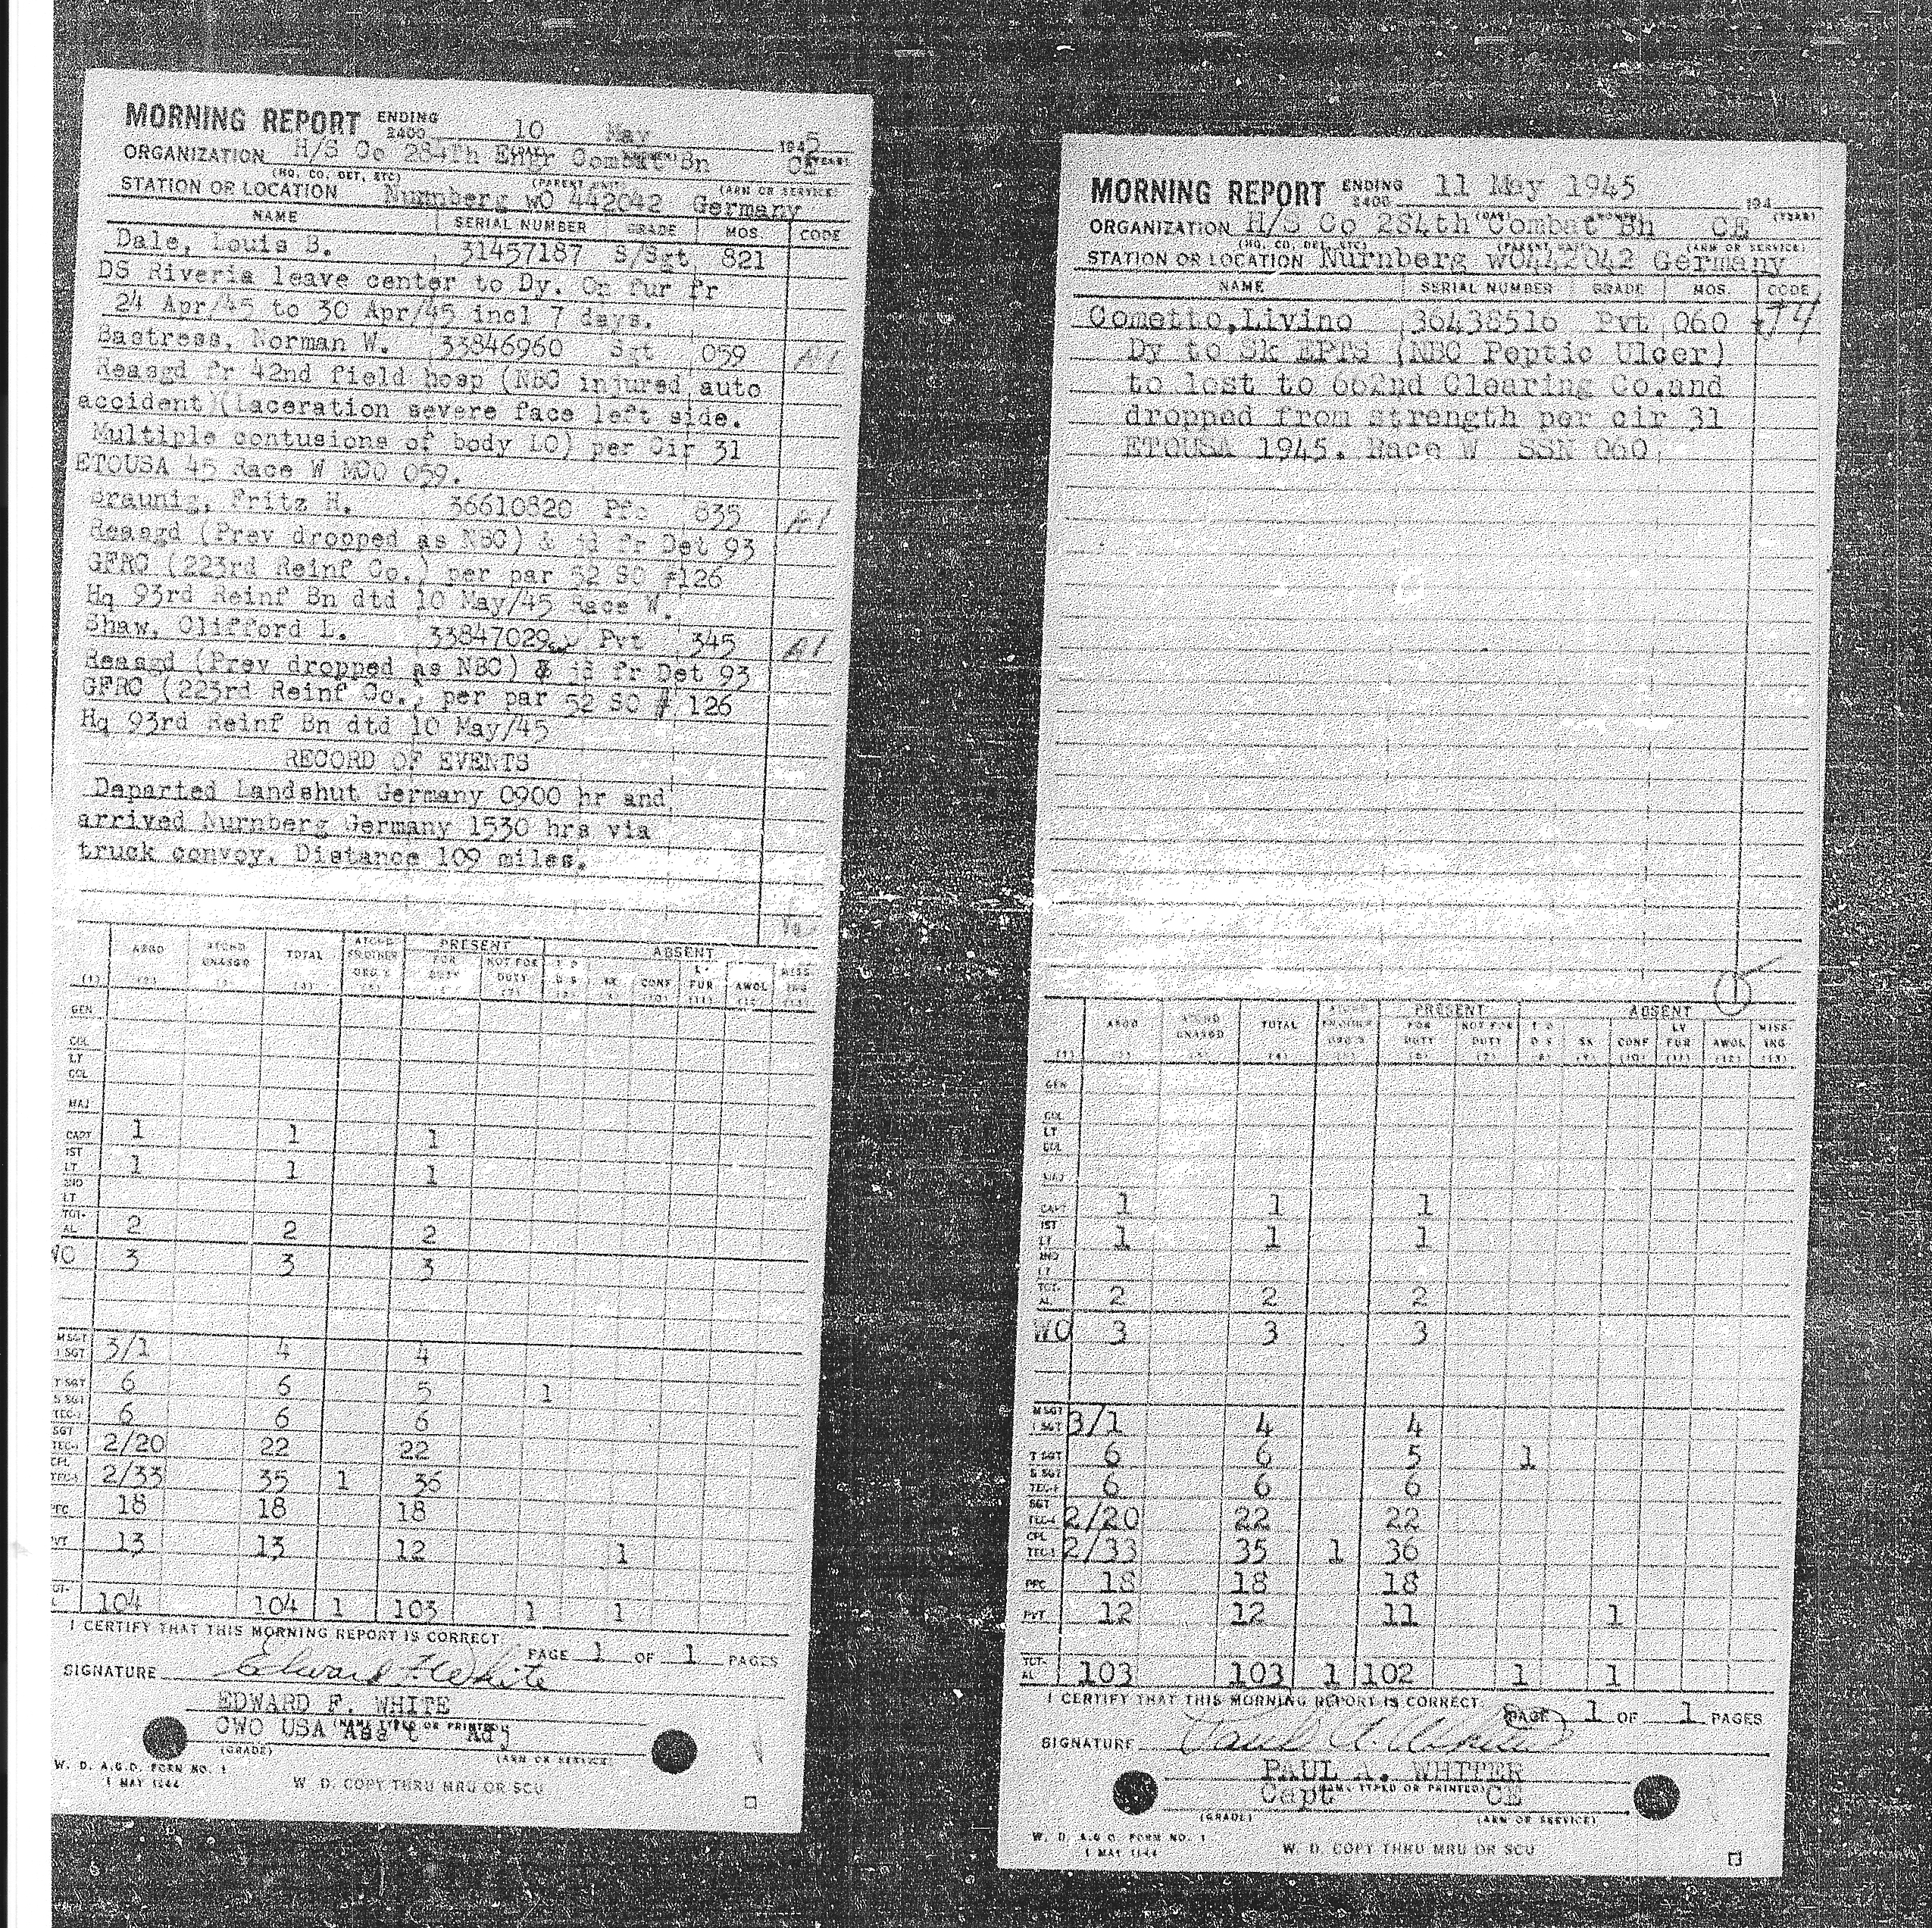 MORNING REPORT ENDING 2400 10 May 1945
ORGANIZATION H/S Co 284Th Engr Combat Bn CE
(HQ. CO. DET. ETC) (PARENT UNIT) (ARM OR SERVICE)
STATION OR LOCATION Nurnberg wO 442042 Germany
NAME SERIAL NUMBER GRADE MOS CODE
Dale, Louis B. 31457187 S/Sgt 821
DS Riveria leave center to Dy. On fur fr
24 Apr/45 to 30 Apr/45 incl 7 days.
Bastress, Norman W. 33846960 Sgt 059 A1
Reasgd fr 42nd field hosp (NBC injured auto
accident)(Laceration severe face left side.
Multiple contusions of body LO) per Cir 31
ETOUSA 45 Race W MOO 059.
Braunig, Fritz H. 36610820 Pfc 835 A1
Reasgd (Prev dropped as NBC) & jd fr Det 93
GFRC (223rd Reinf Co.) per par 52 SO #126
Hq 93rd Reinf Bn dtd 10 May/45 Race W.
Shaw, Clifford L. 33847029 Pvt 345 A1
Reasgd (Prev dropped as NBC) & jd fr Det 93
GFRC (223rd Reinf Co.) per par 52 SO # 126
Hq 93rd Reinf Bn dtd 10 May/45
RECORD OF EVENTS
Departed Landshut Germany 0900 hr and
arrived Nurnberg Germany 1530 hrs via
truck convoy. Distance 109 miles.
PRESENT ABSENT
ASGD ATCHD UNASGD TOTAL ATCHD FR OTHER ORG'S FOR DUTY NOT FOR DUTY T D D S SK CONF LV FUR AWOL MISSING
(1) (2) (3) (4) (5) (6) (7) (8) (9) (10) (11) (12) (13)
GEN
COL
LT COL
MAJ
CAPT 1 1 1
1ST LT 1 1 1
2ND LT
TOTAL 2 2 2
WO 3 3 3
M SGT 1 SGT 3/1 4 4
T SGT 6 6 5 1
S SGT TEC-3 6 6 6
SGT TEC-4 2/20 22 22
CPL TEC-5 2/33 35 1 36
PFC 18 18 18
PVT 13 13 12 1
TOTAL 104 104 1 103 1 1
I CERTIFY THAT THIS MORNING REPORT IS CORRECT.
PAGE 1 OF 1 PAGES
SIGNATURE Edward F White
EDWARD F. WHITE
(NAME TYPED OR PRINTED)
CWO USA Ass't Adj
(GRADE) (ARM OR SERVICE)
W. D. A.G.O. FORM NO. 1
1 MAY 1944
W. D. COPY THRU MRU OR SCU
MORNING REPORT ENDING 2400 11 May 1945 194
(DAY) (MONTH) (YEAR)
ORGANIZATION H/S Co 284th Combat Bn CE
(HQ. CO. DET. ETC) (PARENT UNIT) (ARM OR SERVICE)
STATION OR LOCATION Nurnberg wO442042 Germany
NAME SERIAL NUMBER GRADE MOS CODE
Cometto,Livino 36438516 Pvt 060 74
Dy to Sk EPTS (NBC Peptic Ulcer)
to lost to 662nd Clearing Co.and
dropped from strength per cir 31
ETOUSA 1945. Race W SSN 060
PRESENT ABSENT
ASGD ATCHD UNASGD TOTAL ATCHD FR OTHER ORG'S FOR DUTY NOT FOR DUTY T D D S SK CONF LV FUR AWOL MISSING
(1) (2) (3) (4) (5) (6) (7) (8) (9) (10) (11) (12) (13)
GEN
COL
LT COL
MAJ
CAPT 1 1 1
1ST LT 1 1 1
2ND LT
TOTAL 2 2 2
WO 3 3 3
M SGT 1 SGT 3/1 4 4
T SGT 6 6 5 1
S SGT TEC-3 6 6 6
SGT TEC-4 2/20 22 22
CPL TEC-5 2/33 35 1 36
PFC 18 18 18
PVT 12 12 11 1
TOTAL 103 103 1 102 1 1
I CERTIFY THAT THIS MORNING REPORT IS CORRECT.
PAGE 1 OF 1 PAGES
SIGNATURE Paul A. Whiter
PAUL A. WHITER
(NAME TYPED OR PRINTED)
Capt CE
(GRADE) (ARM OR SERVICE)
W. D. A.G.O. FORM NO. 1
1 MAY 1944
W. D. COPY THRU MRU OR SCU